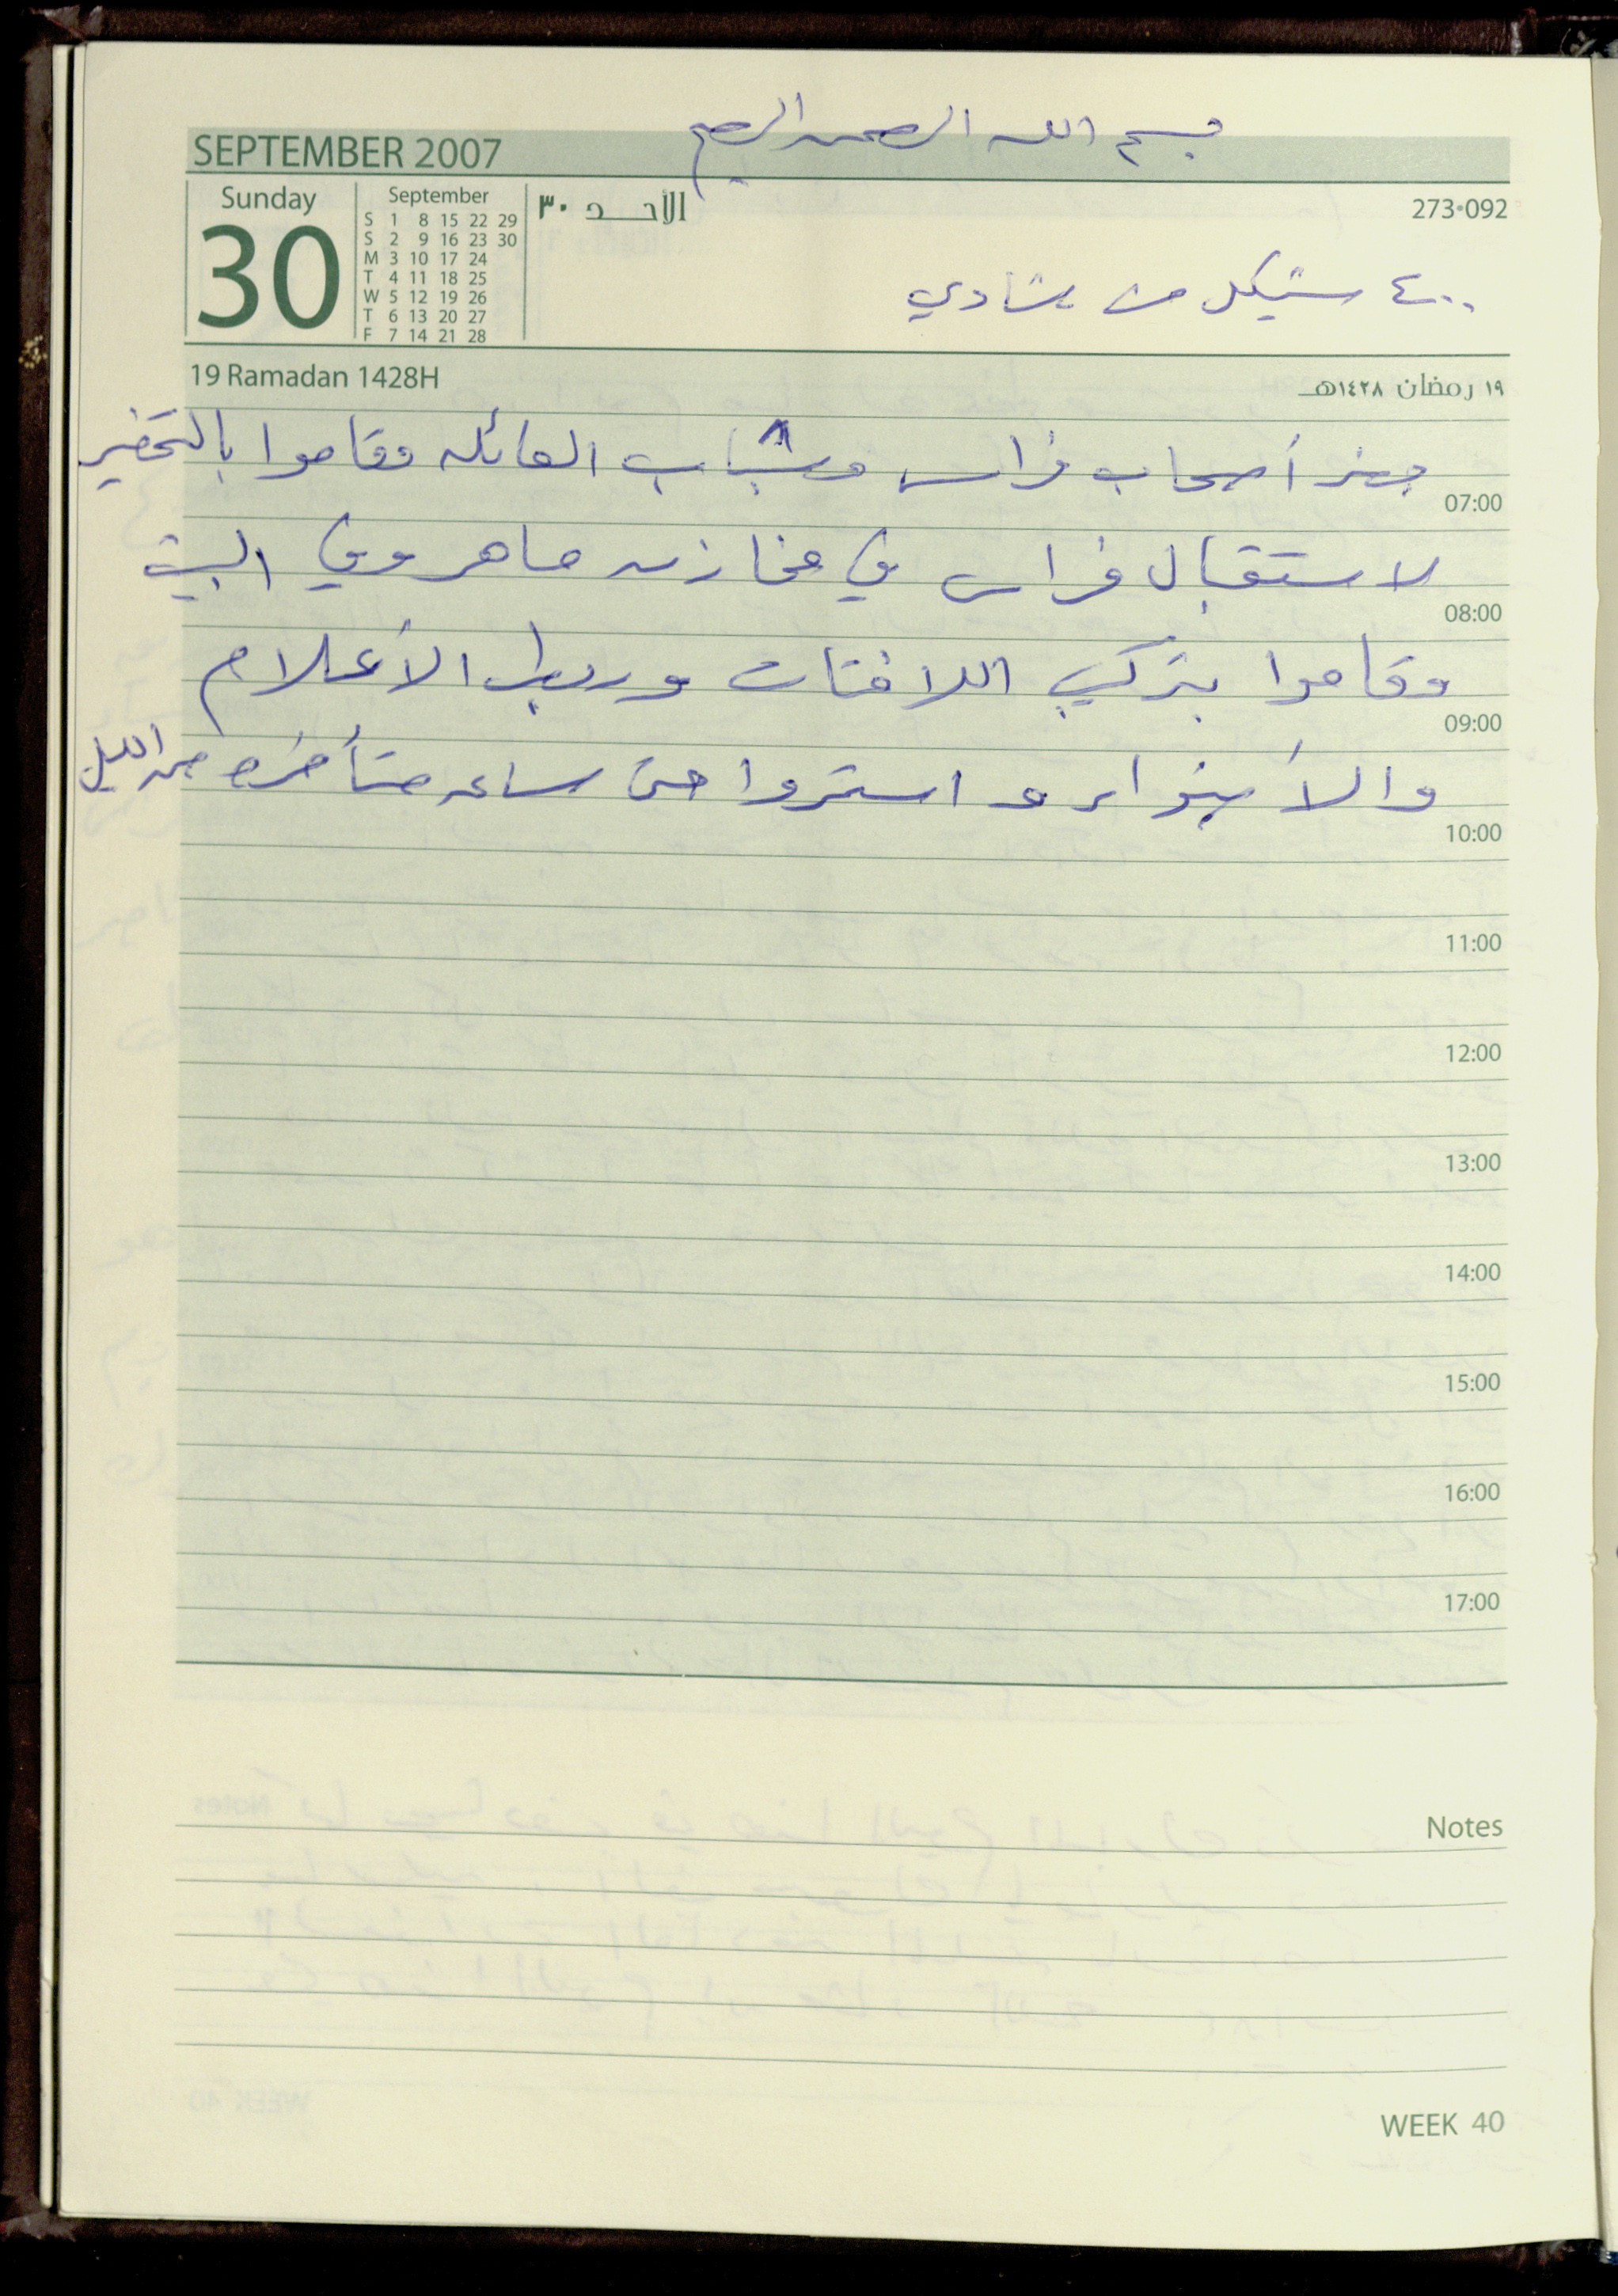 بسم الله الرحمن الرحيم
SEPTEMBER 2007
Sunday
30
September
S 1 8 15 22 29
S 2 9 16 23 30
M 3 10 17 24
T 4 11 18 25
W 5 12 19 26
T 6 13 20 27
F 7 14 21 28
الأحـــد ٣٠
273-092
٤٠٠ شيكل من شادي
19 Ramadan 1428H
١٩ رمضان ١٤٢٨هـ
أصحاب فراس وشباب العائله وقاموا بالتحضير
07:00
لاستقبال فراس في مخازن ماهر وفي البيت
08:00
وقاموا بتركيب اللافتات وربط الأعلام
09:00
والأنوار و استمروا حتى ساعه متأخره من الليل
10:00
11:00
12:00
13:00
14:00
15:00
16:00
17:00
Notes
WEEK 40